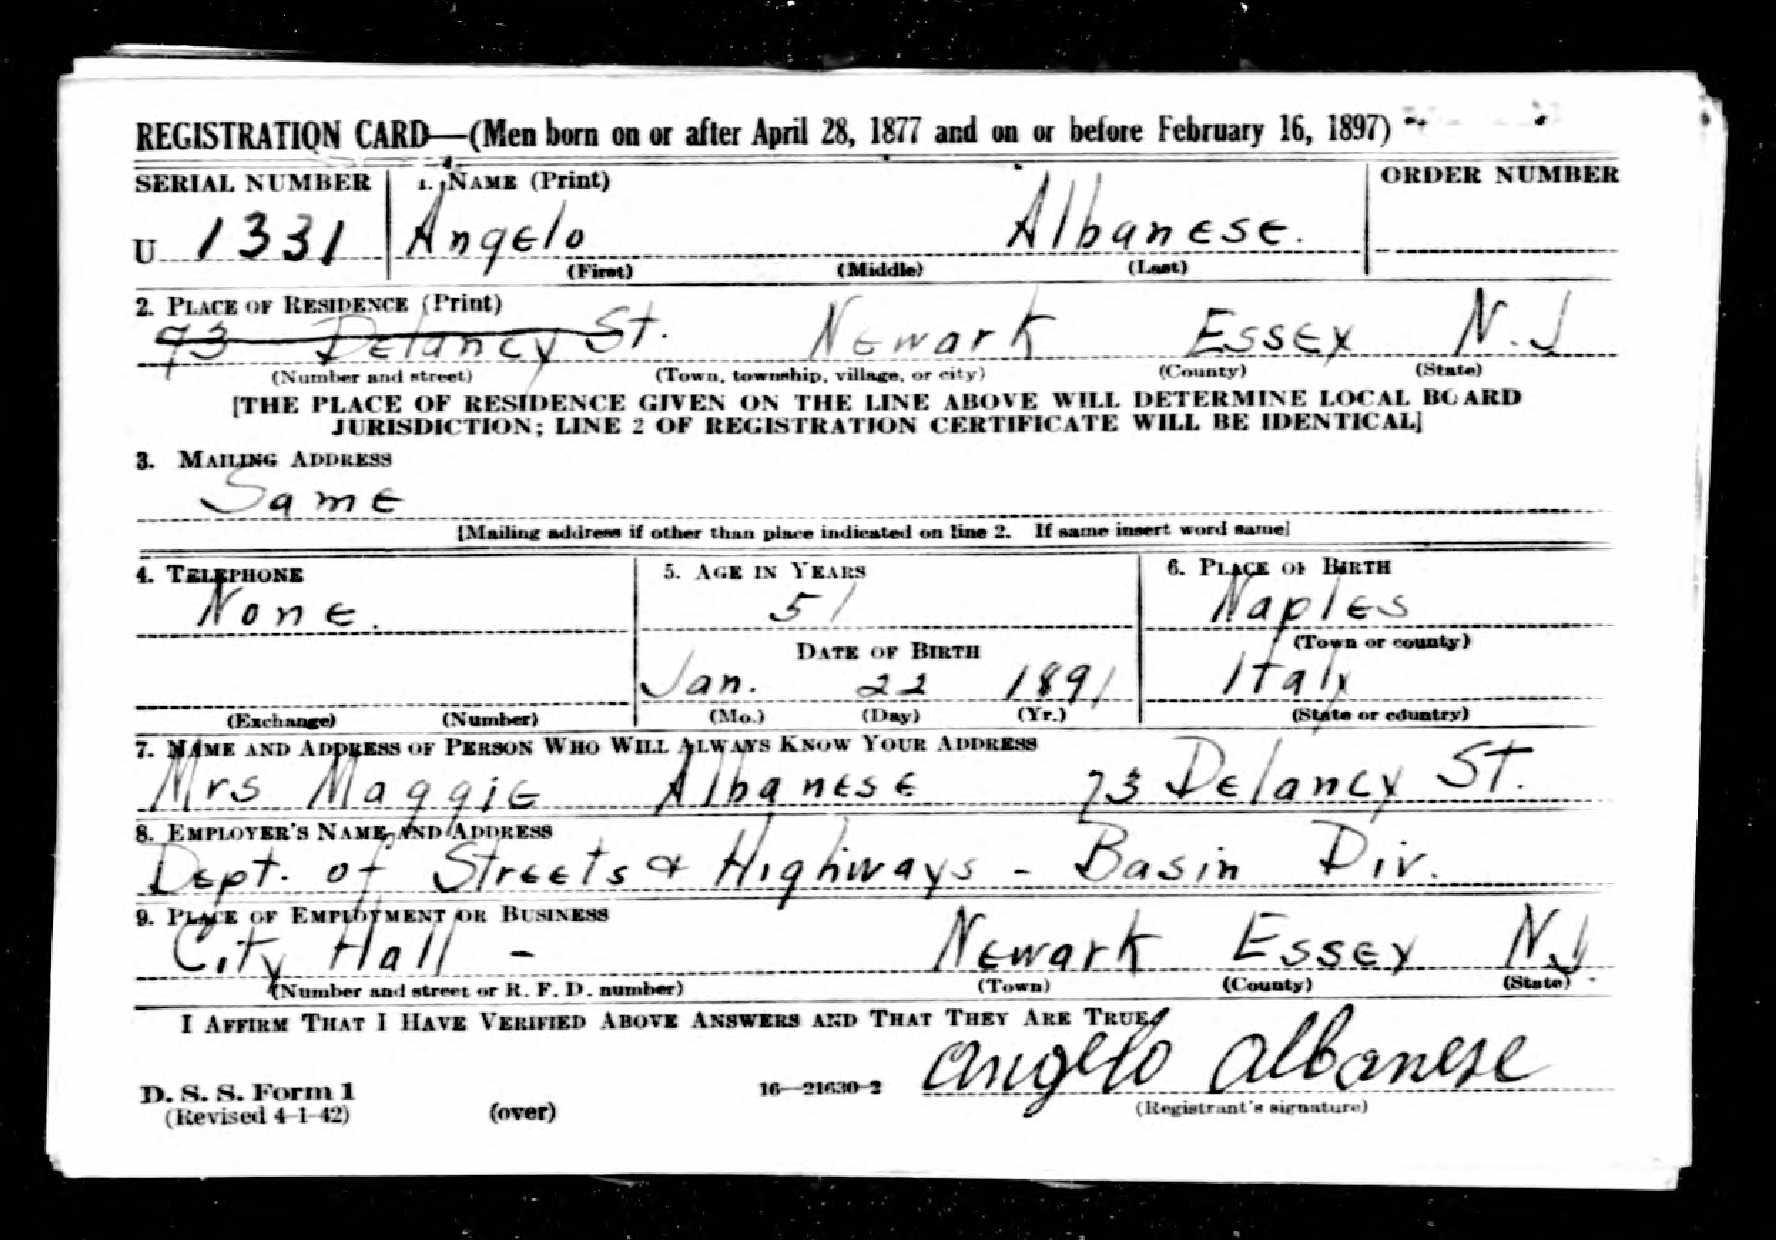 REGISTRATION CARD—(Men born on or after April 28, 1877 and on or before February 16, 1897)
SERIAL NUMBER 1. NAME (Print) ORDER NUMBER
U 1331 Angelo Albanese.
(First) (Middle) (Last)
2. PLACE OF RESIDENCE (Print)
73 Delancy St. Newark Essex N.J
(Number and street) (Town, township, village, or city) (County) (State)
[THE PLACE OF RESIDENCE GIVEN ON THE LINE ABOVE WILL DETERMINE LOCAL BOARD
JURISDICTION; LINE 2 OF REGISTRATION CERTIFICATE WILL BE IDENTICAL]
3. MAILING ADDRESS
Same
[Mailing address if other than place indicated on line 2. If same insert word same]
4. TELEPHONE 5. AGE IN YEARS 6. PLACE OF BIRTH
None. 51 Naples
(Town or county)
DATE OF BIRTH
Jan. 22 1891 Italy
(Exchange) (Number) (Mo.) (Day) (Yr.) (State or country)
7. NAME AND ADDRESS OF PERSON WHO WILL ALWAYS KNOW YOUR ADDRESS
Mrs Maggie Albanese 73 Delancy St.
8. EMPLOYER'S NAME AND ADDRESS
Dept. of Streets & Highways - Basin Div.
9. PLACE OF EMPLOYMENT OR BUSINESS
City Hall - Newark Essex N.J
(Number and street or R. F. D. number) (Town) (County) (State)
I AFFIRM THAT I HAVE VERIFIED ABOVE ANSWERS AND THAT THEY ARE TRUE.
Angelo Albanese
D. S. S. Form 1 16—21630-2
(Revised 4-1-42) (over) (Registrant's signature)